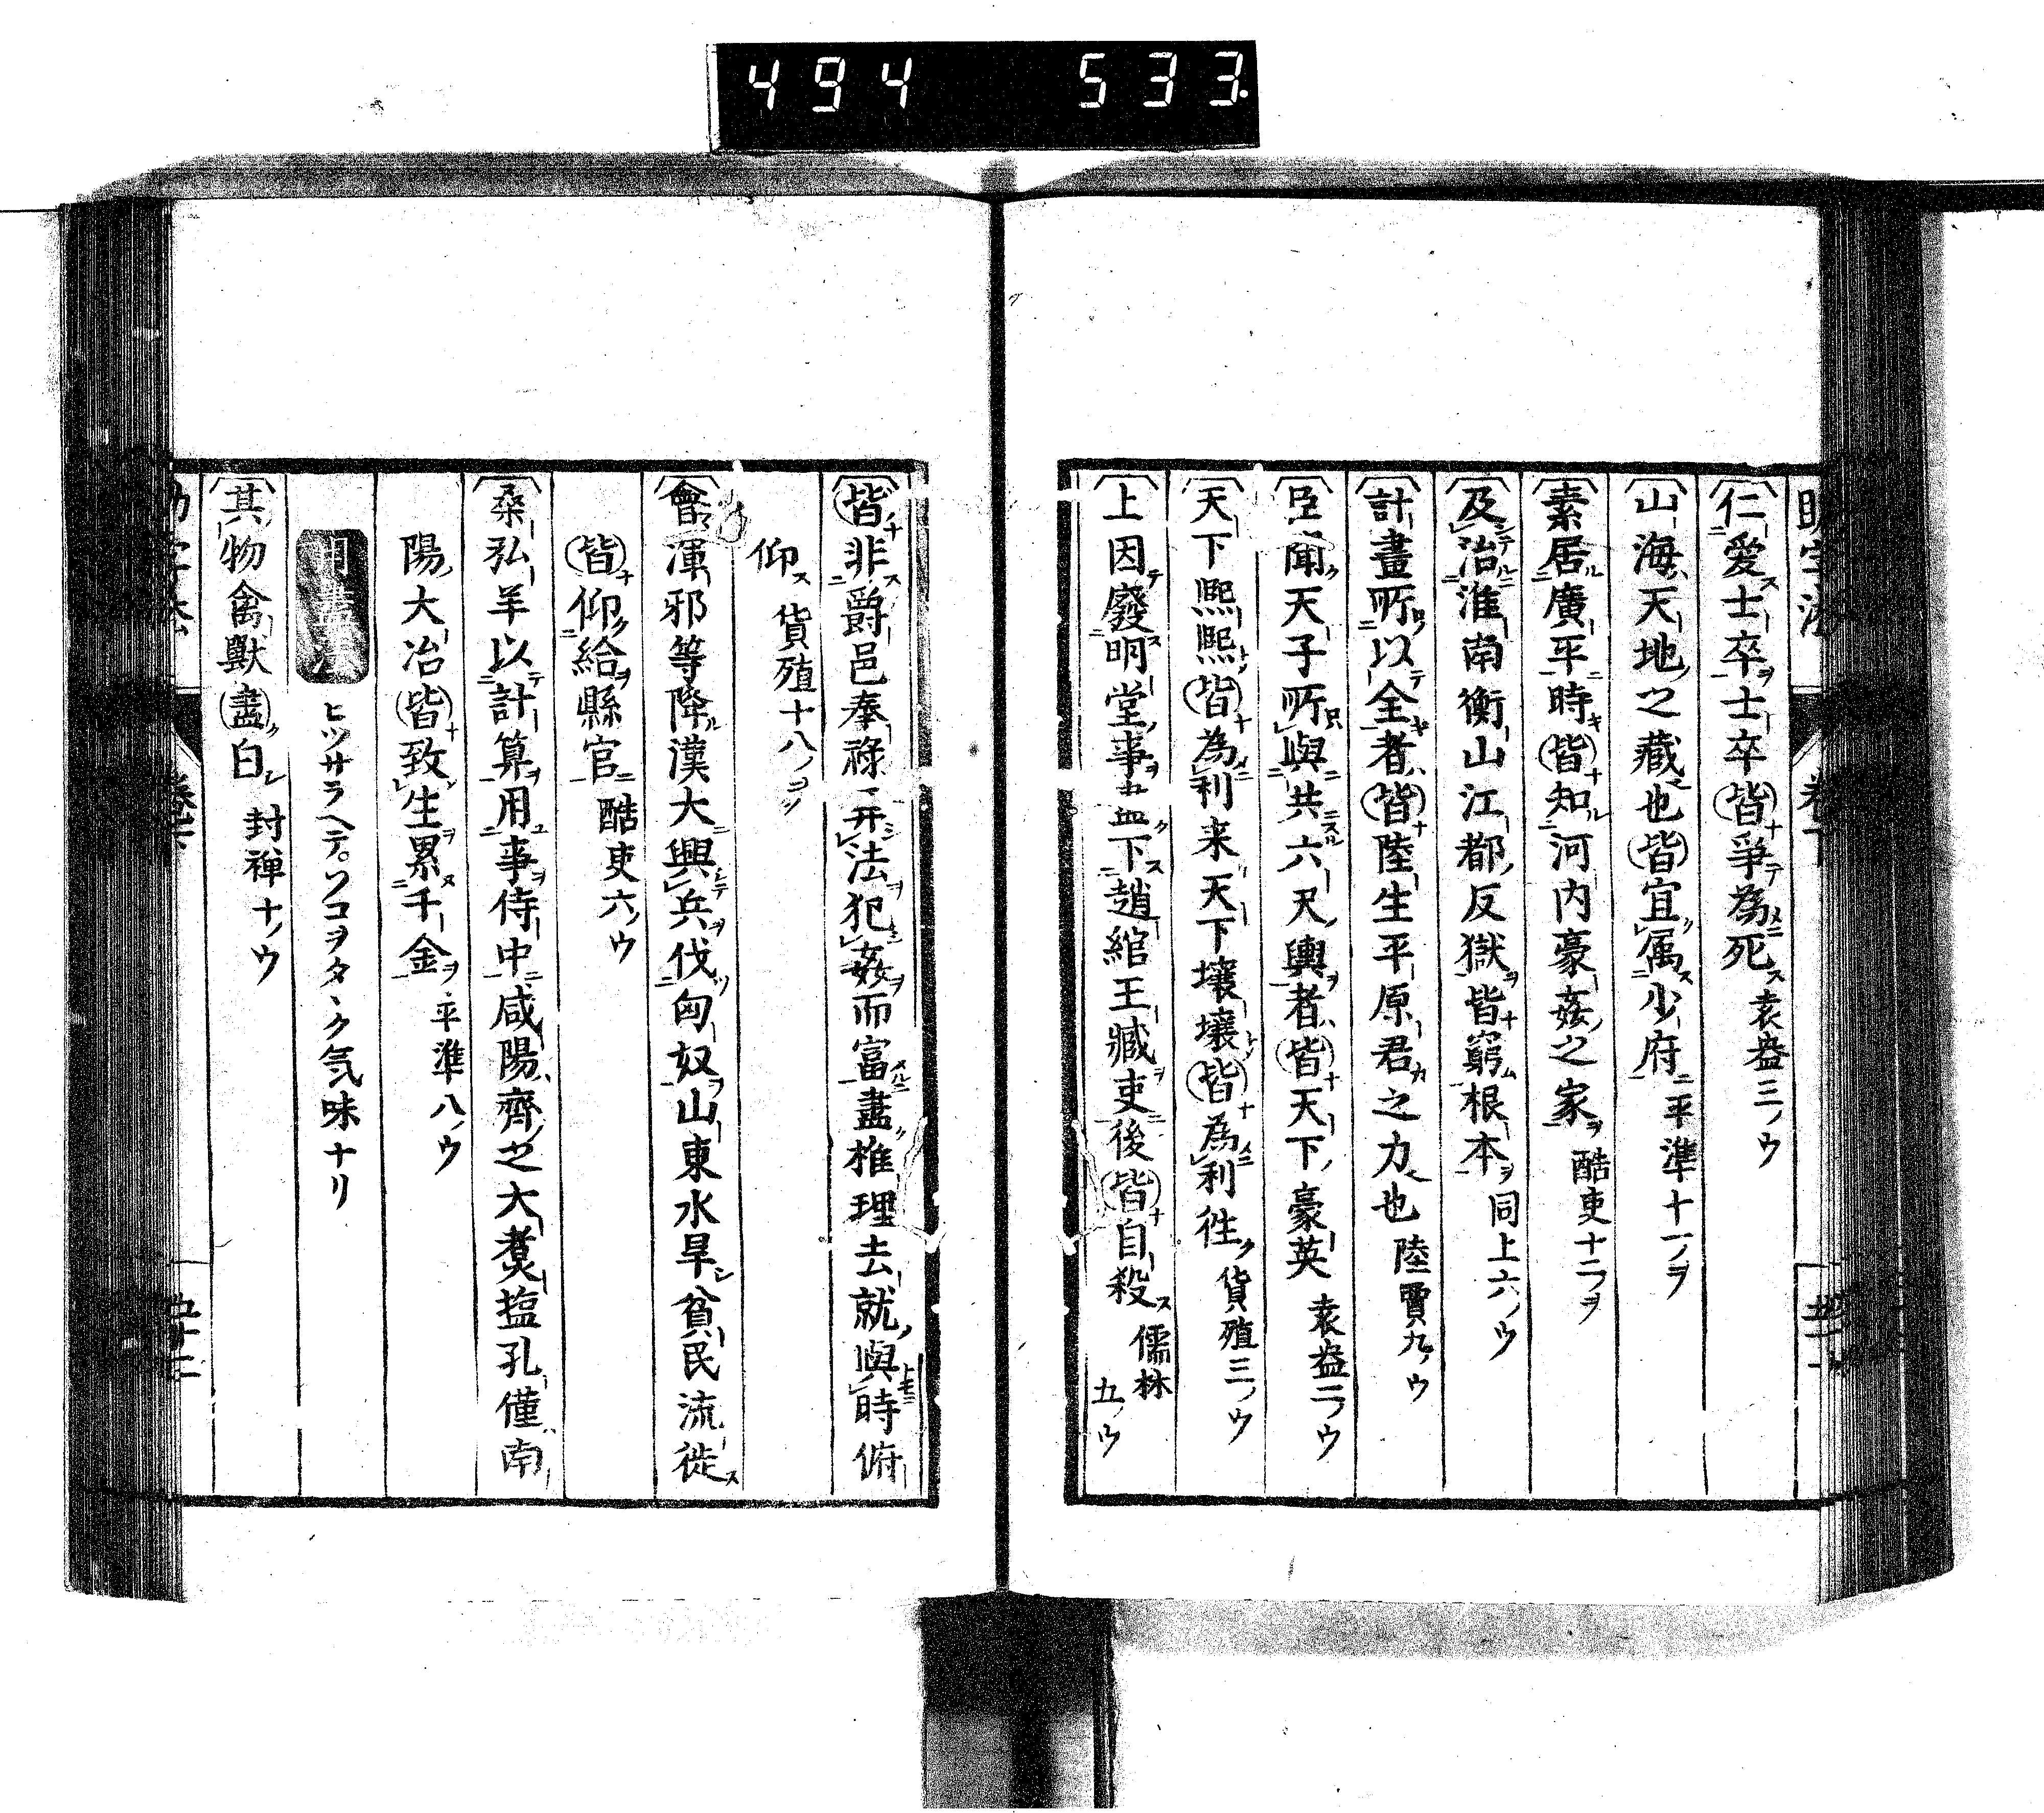 494 533
仁愛士卒士卒皆爭為死 袁盎三ノウ
山海天地之藏也皆宜属少府 平準十一ノヲ
素居廣平時皆知河内豪姦之家 酷吏十二ノヲ
及治淮南衡山江都反獄皆窮根本 同上六ノウ
計畫所以全者皆陸生平原君之力也 陸賈九ノウ
臣聞天子所與共六尺輿者皆天下豪英 袁盎二ノウ
天下熙熙皆為利来天下壤壤皆為利徃 貨殖三ノウ
上因廢明堂事下趙綰王臧吏後皆自殺 儒林五ノウ
皆非爵邑奉祿弄法犯姦而富盡椎理去就與時俯
仰 貨殖十八ノヲ
會渾邪等降漢大興兵伐匈奴山東水旱貧民流徙
皆仰給縣官 酷吏六ノウ
桑弘羊以計算用事侍中咸陽齊之大煑塩孔僅南
陽大冶皆致生累千金 平準八ノウ
ヒツサラヘテ。ソコヲタヽク気味ナリ
其物禽獸盡白 封禅十ノウ